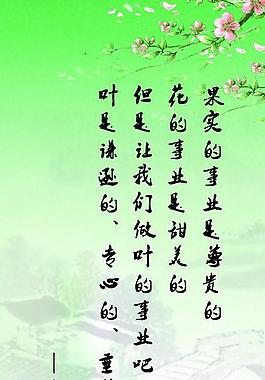 果实的事业是尊贵的
花的事业是甜美的
但是让我们做叶的事业吧
叶是谦逊的、专心的、垂